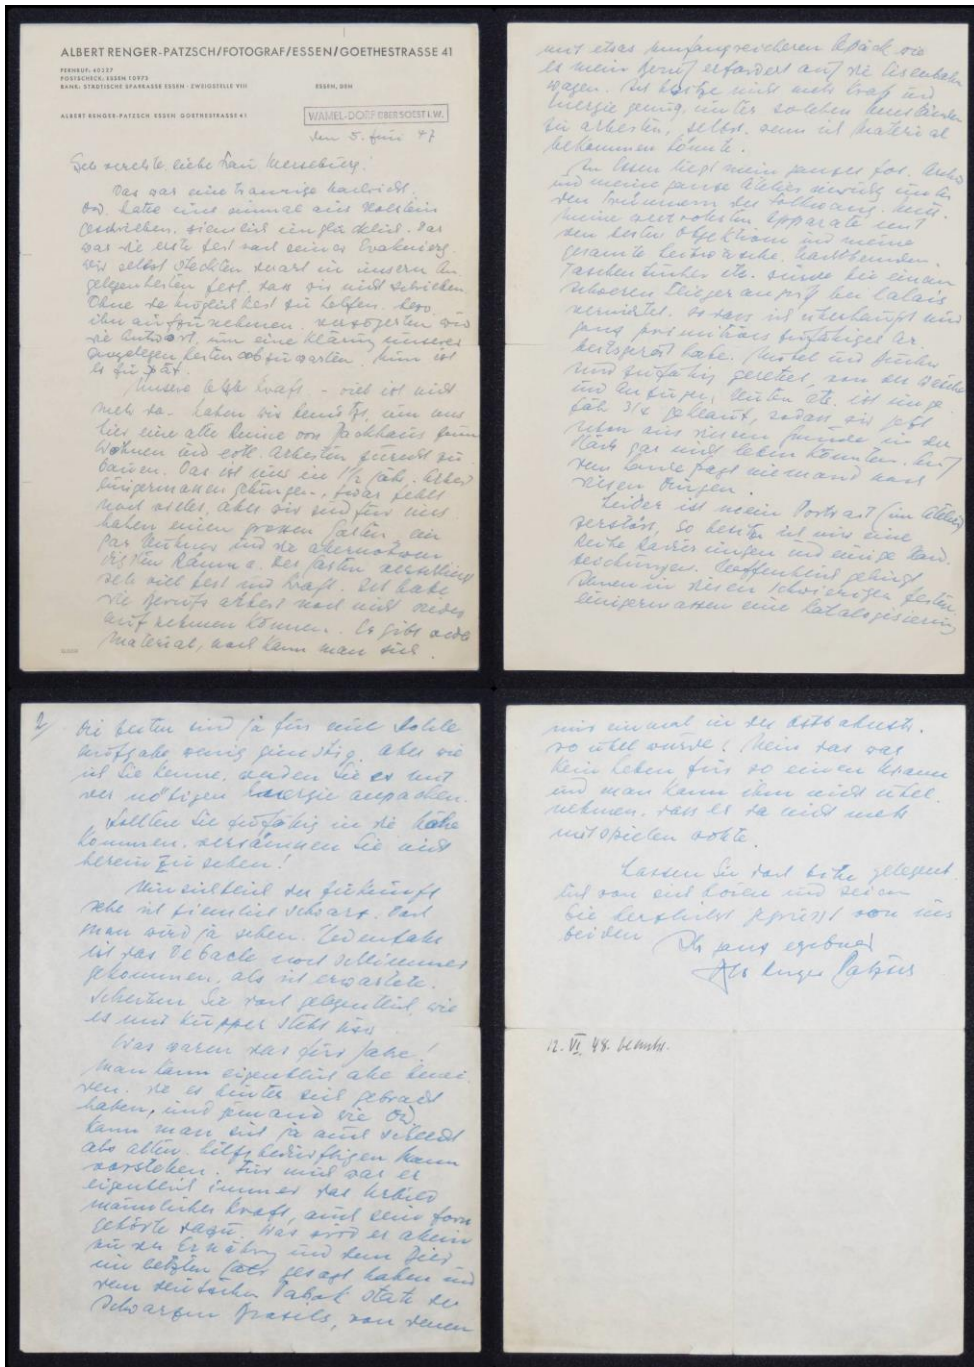 ALBERT RENGER-PATZSCH/FOTOGRAF/ESSEN/GOETHESTRASSE 41
FERNRUF: 40257
POSTSCHECK: ESSEN 10975
BANK: STÄDTISCHE SPARKASSE ESSEN · ZWEIGSTELLE VIII
ESSEN, DEN
ALBERT RENGER-PATZSCH ESSEN GOETHESTRASSE 41
WAMEL-DORF ÜBER SOEST I.W.
den 5. Juni 47
Sehr verehrte, liebe Frau Merseburg!
Das war eine traurige Nachricht.
hatte uns einmal aus Holstein
geschrieben, ziemlich unglücklich. Das
war die erste Zeit nach seiner Evakuierg.
Wir selbst steckten derart in unsern An
gelegenheiten fest, dass wir nicht schrieben.
Ohne die Möglichkeit zu helfen,
ihn aufzunehmen, verzögerten wir
die Antwort, um eine Klärung unserer
Angelegenheiten abzuwarten. Nun ist
es zu spät.
Unsere letzte Kraft – viel ist nicht
mehr da – haben wir benützt, um uns
hier eine alte Ruine von Backhaus zum
Wohnen und evtl. Arbeiten zurecht zu
bauen. Das ist uns in 1½ jähr. Arbeit
einigermassen gelungen, zwar fehlt
noch vieles, aber wir sind für uns,
haben einen grossen Garten, ein
par Hühner und die allernotwen
digsten Räume. Der Garten verschlingt
sehr viel Zeit und Kraft. Ich habe
die Berufsarbeit noch nicht wieder
aufnehmen können. Es gibt weder
Material, noch kann man sich
mit etwas umfangreicherem Gepäck wie
es mein Beruf erfordert auf die Eisenbahn
wagen. Ich besitze nicht mehr Kraft und
Energie genug, unter solchen Umständen
zu arbeiten, selbst wenn ich Material
bekommen könnte.
In Essen liegt mein ganzes fot. Archiv
und meine ganze Ateliereinrichtg unter
den Trümmern des Folkwang. Mus.
Meine wertvollsten Apparate mit
den besten Objektiven und meine
gesamte Leibwäsche, Nachthemden,
Taschentücher etc. sind bei einem
schweren Fliegerangriff bei Calais
vernichtet, so dass ich überhaupt nur
ganz primitives zufälliges Ar
beitsgerät habe. Möbel und Bücher
sind zufällig gerettet, von der Wäsche
und Anzügen, Hüten etc. ist unge
fähr 3/4 geklaut, sodass wir jetzt
schon aus diesem Grunde in der
Stadt gar nicht leben könnten. Auf
dem Lande fragt niemand nach
diesen Dingen.
Leider ist mein Portrait (im Atelier)
zerstört, so besitze ich nur eine
Reihe Radierungen und einige Hand
zeichnungen. Hoffentlich gelingt
Ihnen in diesen schwierigen Zeiten
einigermassen eine Katalogisierung
2/
Die Zeiten sind ja für eine solche
Aufgabe wenig günstig, aber wie
ich Sie kenne, werden Sie es mit
der nötigen Energie anpacken.
Sollten Sie zufällig in die Nähe
kommen, versäumen Sie nicht
herein zu sehen!
Hinsichtlich der Zukunft
sehe ich ziemlich schwarz. Doch
man wird ja sehen. Jedenfalls
ist das Debacle noch schlimmer
gekommen, als ich erwartete.
Schreiben Sie doch gelegentlich, wie
es mit Küpper steht usw.
Was waren das für Jahre!
Man kann eigentlich alle benei
den, die es hinter sich gebracht
haben, und jemand wie
kann man sich ja auch schlecht
als alten, hilfsbedürftigen Mann
vorstehen. Für mich war er
eigentlich immer das Urbild
männlicher Kraft, auch sein Zorn
gehörte dazu. Was wird er allein
zu der Ernährg und dem Bier
im letzten Jahr gesagt haben und
dem deutschen Tabak statt der
schwarzen Brasils, von denen
mir einmal in der
so übel wurde! Nein das war
kein Leben für so einen Mann
und man kann ihm nicht übel
nehmen, dass er da nicht mehr
mitspielen wollte.
Lassen Sie doch bitte gelegent
lich von sich hören und seien
Sie herzlichst gegrüsst von uns
beiden
Ihr ganz ergebner
Alb Renger Patzsch
12. VI. 48.